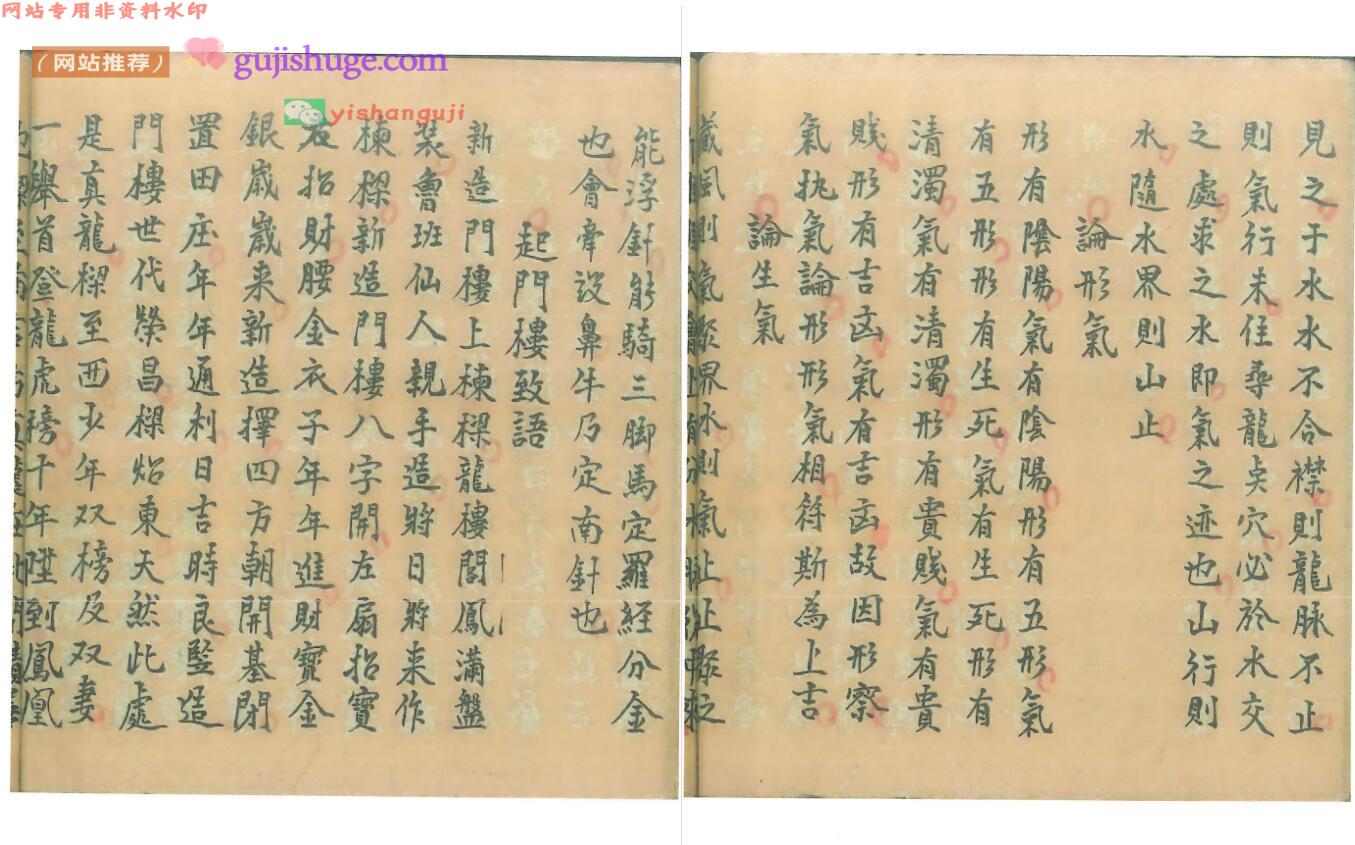 网站专用非资料水印
（网站推荐）
gujishuge.com
yishanguji
見之于水水不合襟則龍脉不止
則氣行未住尋龍点穴必於水交
之處求之水即氣之迹也山行則
水隨水界則山止
論形氣
形有陰陽氣有陰陽形有五形氣
有五形形有生死氣有生死形有
清濁氣有清濁形有貴賤氣有貴
賤形有吉凶氣有吉凶故因形察
氣执氣論形形氣相符斯為上吉
論生氣
藏風則氣聚界水則氣止止聚之
能浮針能騎三脚馬定羅経分金
也會牽設鼻牛乃定南針也
起門樓致語
新造門樓上棟樑龍樓閣鳳滿盤
装魯班仙人親手造將日將来作
棟樑新造門樓八字開左扇招寶
右招財腰金衣子年年進財寶金
銀歲歲来新造擇四方朝開基閉
置田庄年年通利日吉時良監造
門樓世代榮昌樑焰東天然此處
是真龍樑至西少年双榜及双妻
一舉首登龍虎榜十年身到鳳凰